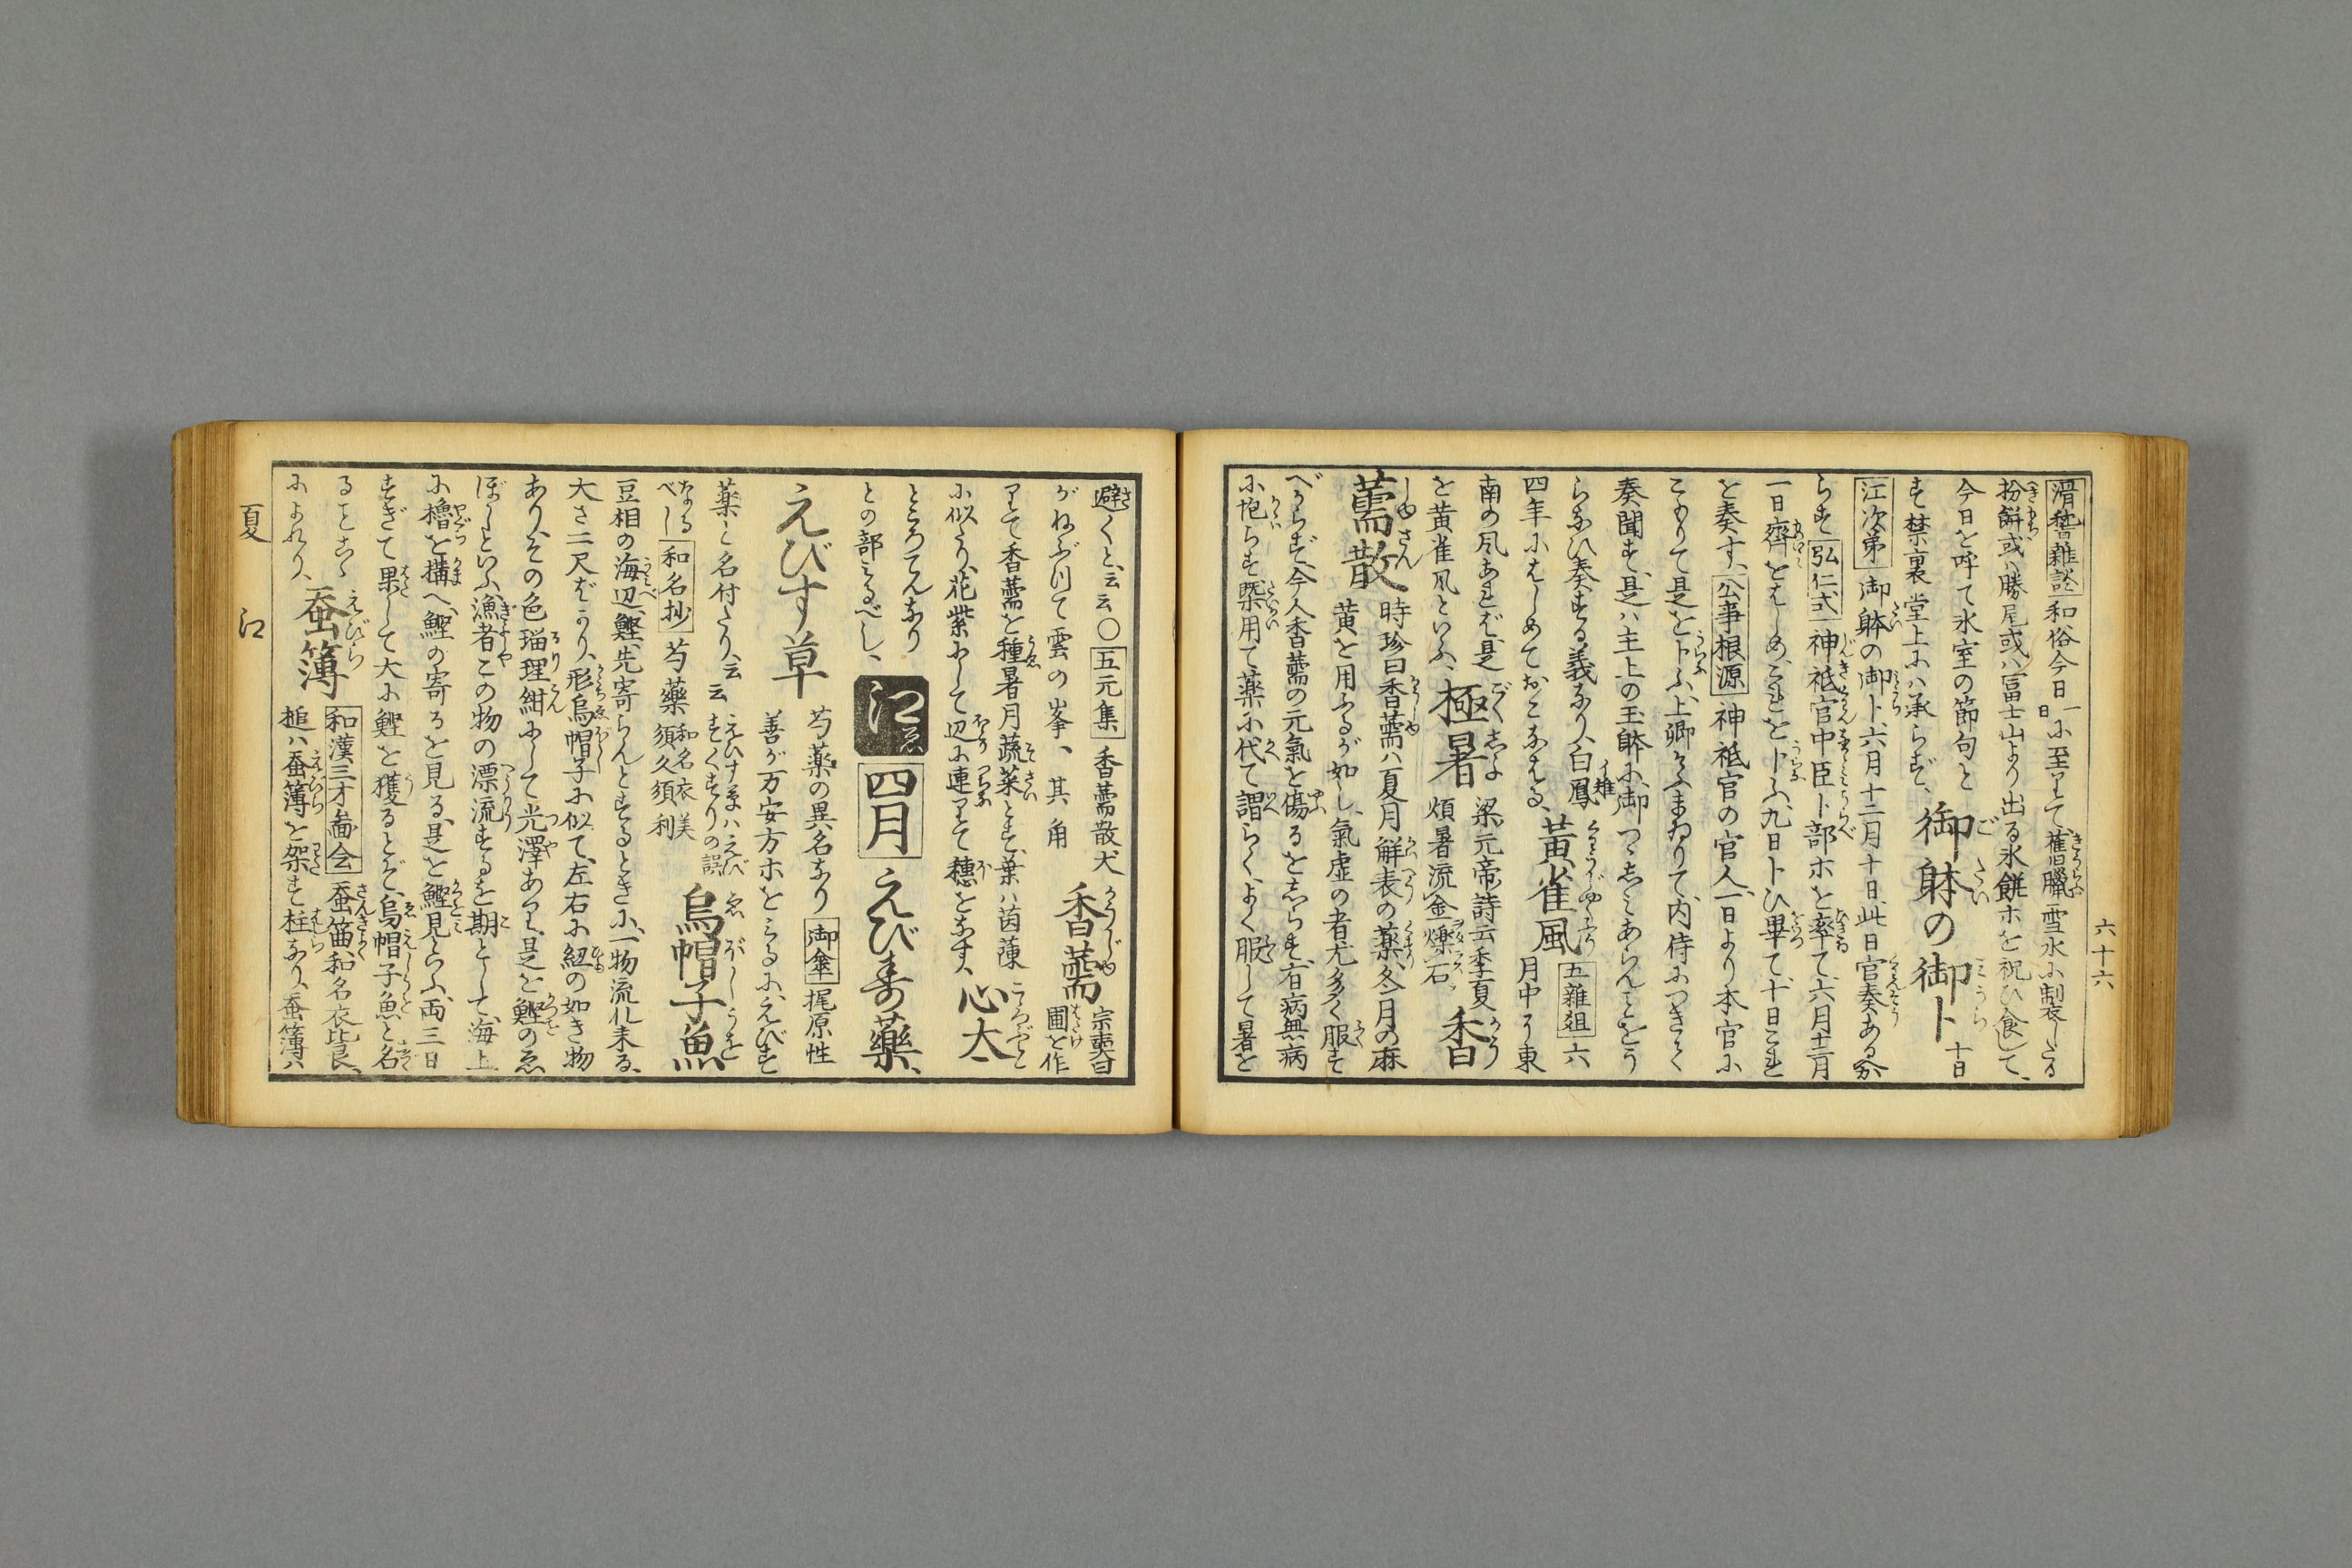 六十六
滑稽雑談 和俗今日一日に至りて、旧臘雪水に製したる
粉餅或ハ勝尾或ハ冨士山より出る氷餅ホを祝ひ食して、
今日を呼て氷室の節句と 御躰の御卜 十日
す禁裏堂上にハ承らず、
江次第 御躰の御卜、六月十二月十日、此日官奏ある
らず 弘仁式 神祇官中臣卜部ホを率て、六月十二月
一日齊をはしめ、これを卜ふ、九日卜ひ畢て、十日これ
を奏す、 公事根源 神祇官の官人、一日より本官に
こもりて是を卜ふ、上卿そふまゐりて、内侍につきて
奏聞す、是ハ主上の玉躰に、御つゝしみあらんことをう
らなひ奏する義なり、白鳳 黄雀風 五雜俎 六
四年にはしめておこなはる、 月中より東
南の風あれば、是 極暑 梁元帝詩云季夏
を黄雀風といふ、 煩暑流金爍石 香
薷散 時珍曰香薷ハ夏月解表の薬、冬月の麻
黄を用ふるが如し、氣虚の者尤多く服す
べからず、今人香薷の元氣を傷るをしらず、有病無病
に抱らす槩用て薬に代て謂らく、よく服して暑を
避くと、云云〇 五元集 香薷散犬 香薷 宗奭曰
がねぶりて雲の峯、其角 圃を作
りて香薷を種暑月蔬菜とす、葉ハ茵蔯
に似たり、花紫にして辺に連りて穗をなす、 心太
ところてんなり こゝろぶと
との部みるべし、 江 四月 えび寿薬、
えびす草 芍薬の異名なり 御傘 梶原性
善が万安方ホをみるに、えびす
薬と名付たり、云云 えひす草ハえび すくすりの誤
なるべし 和名抄 芍藥 和名衣美 須久須利 烏帽子魚
豆相の海辺、鰹先寄らんとするときに、一物流れ来る、
大さ二尺ばかり、形烏帽子に似て、左右に紐の如き物
あり、その色瑠理紺にして光澤あり、是を鰹のゑ
ぼしといふ、漁者この物の漂流するを期として、海上
に櫓を搆へ、鰹の寄るを見る、是を鰹見といふ、両三日
すぎて果して大に鰹を獲るとぞ、烏帽子魚と名
るもこゝ 蚕簿 和漢三才圖会 蚕笛、和名衣比良、
によれり、 槌ハ蚕簿を架す柱なり、蚕簿ハ
夏 江